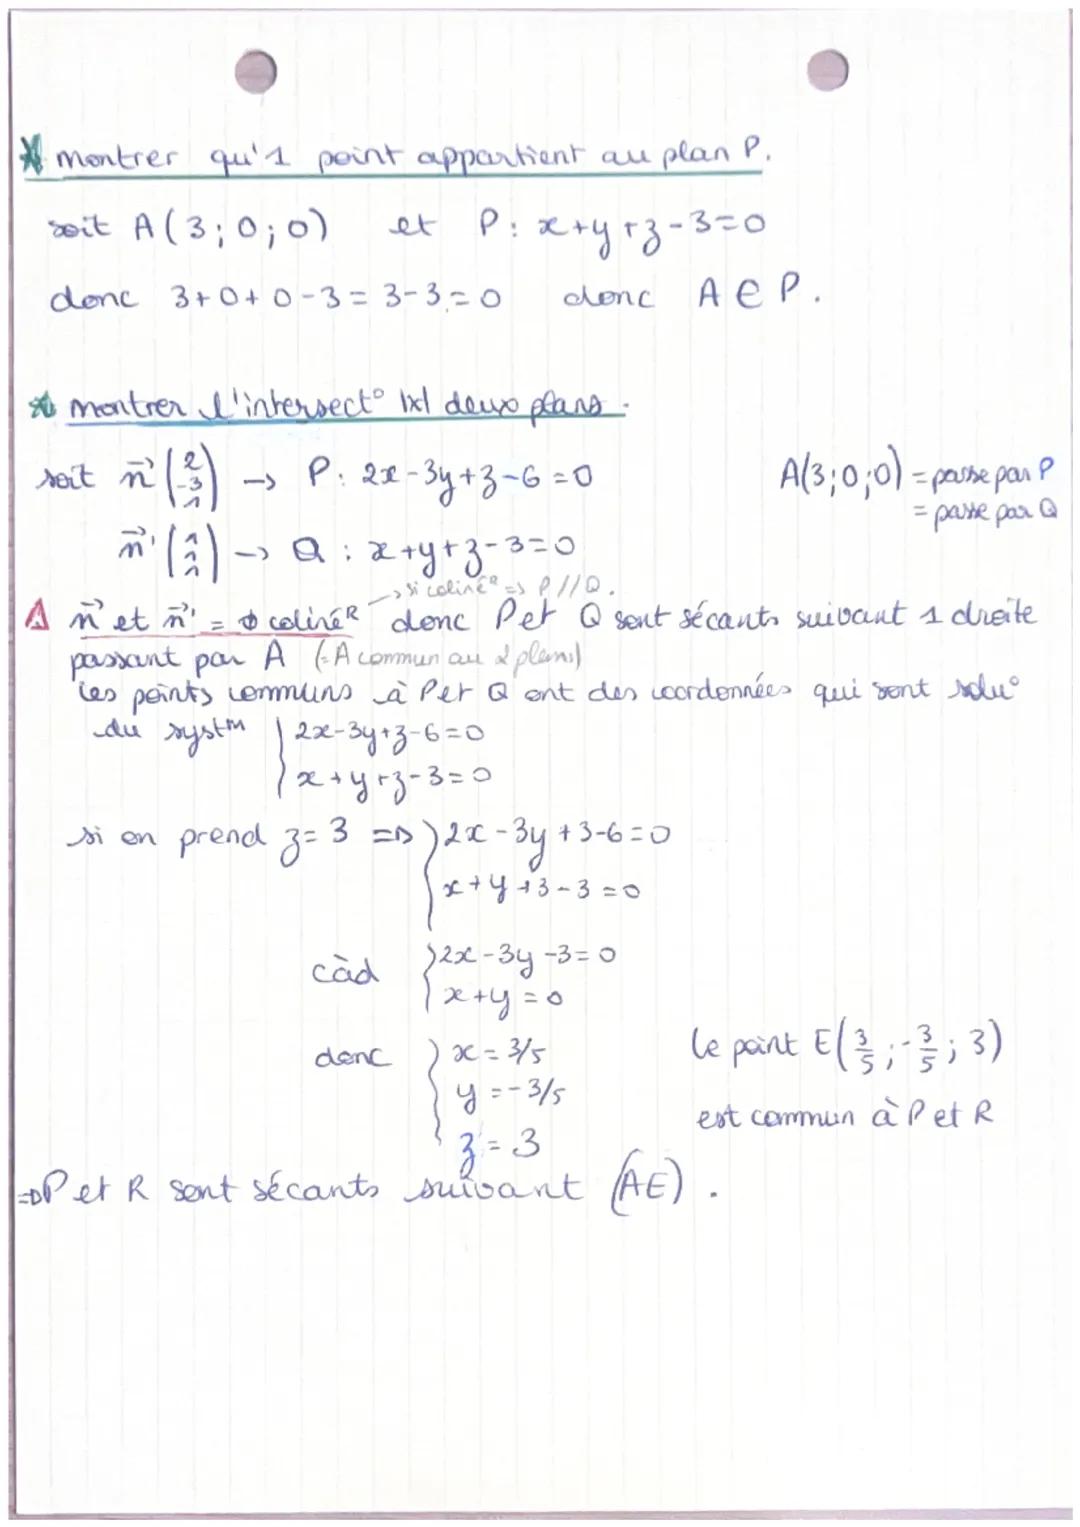 * montrer qu'1 point appartient au plan P.
soit A(3;0;0) et P: x+y+z-3=0
donc 3+0+0-3=3-3=0 donc A∈P.
* montrer l'intersect° lxl deux plans.
soit n⃗(2 -3 1) → P: 2x-3y+z-6=0
A(3;0;0) = passe par P
= passe par Q
n⃗'(1 1 1) → Q: x+y+z-3=0
→ si colinéR => P//Q.
⚠ n⃗ et n⃗' = φ colinéR donc P et Q sont sécants suivant 1 droite
passant par A (=A commun au 2 plans)
les points communs à P et Q ont des coordonnées qui sont solu°
du systm { 2x-3y+z-6=0
x+y+z-3=0
si on prend z=3 => { 2x-3y+3-6=0
x+y+3-3=0
càd { 2x-3y-3=0
x+y=0
donc { x=3/5
y=-3/5
z=3
le point E(3/5;-3/5;3)
est commun à P et R
=> P et R sont sécants suivant (AE).